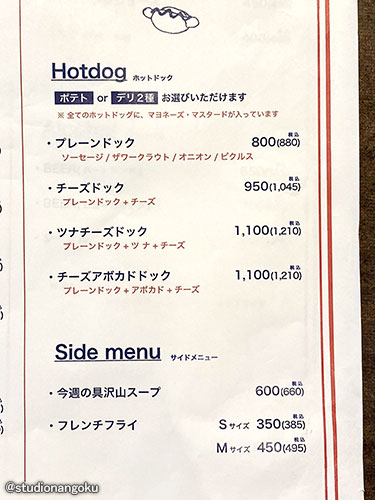 Hotdog ホットドック
ポテト or デリ2種 お選びいただけます
※ 全てのホットドッグに、マヨネーズ・マスタードが入っています
・プレーンドック 800(880) 税込
ソーセージ / ザワークラウト / オニオン / ピクルス
・チーズドック 950(1,045) 税込
プレーンドック + チーズ
・ツナチーズドック 1,100(1,210) 税込
プレーンドック + ツナ + チーズ
・チーズアボカドドック 1,100(1,210) 税込
プレーンドック + アボカド + チーズ
Side menu サイドメニュー
・今週の具沢山スープ 600(660) 税込
・フレンチフライ Sサイズ 350(385) 税込
Mサイズ 450(495) 税込
@studionangoku